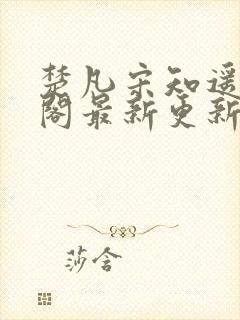 楚凡宋知遥
阁最新更新
莎含